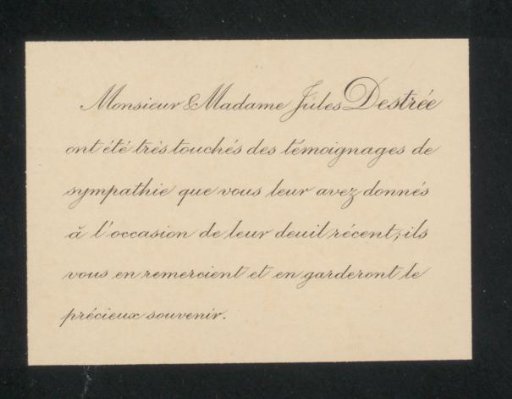 Monsieur & Madame Jules Destrée
ont été très touchés des témoignages de
sympathie que vous leur avez donnés
à l'occasion de leur deuil récent; ils
vous en remercient et en garderont le
précieux souvenir.